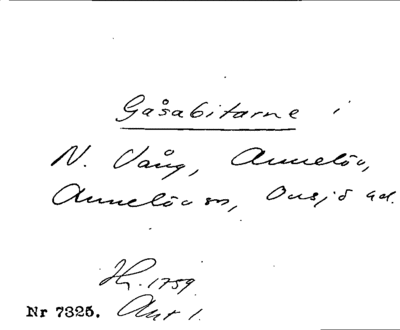 Gåsabitarne i
N. Vång, Annelöv,
Annelöv sn, Onsjö hd.
Hr. 1759.
Nr 7325. Ant 1.